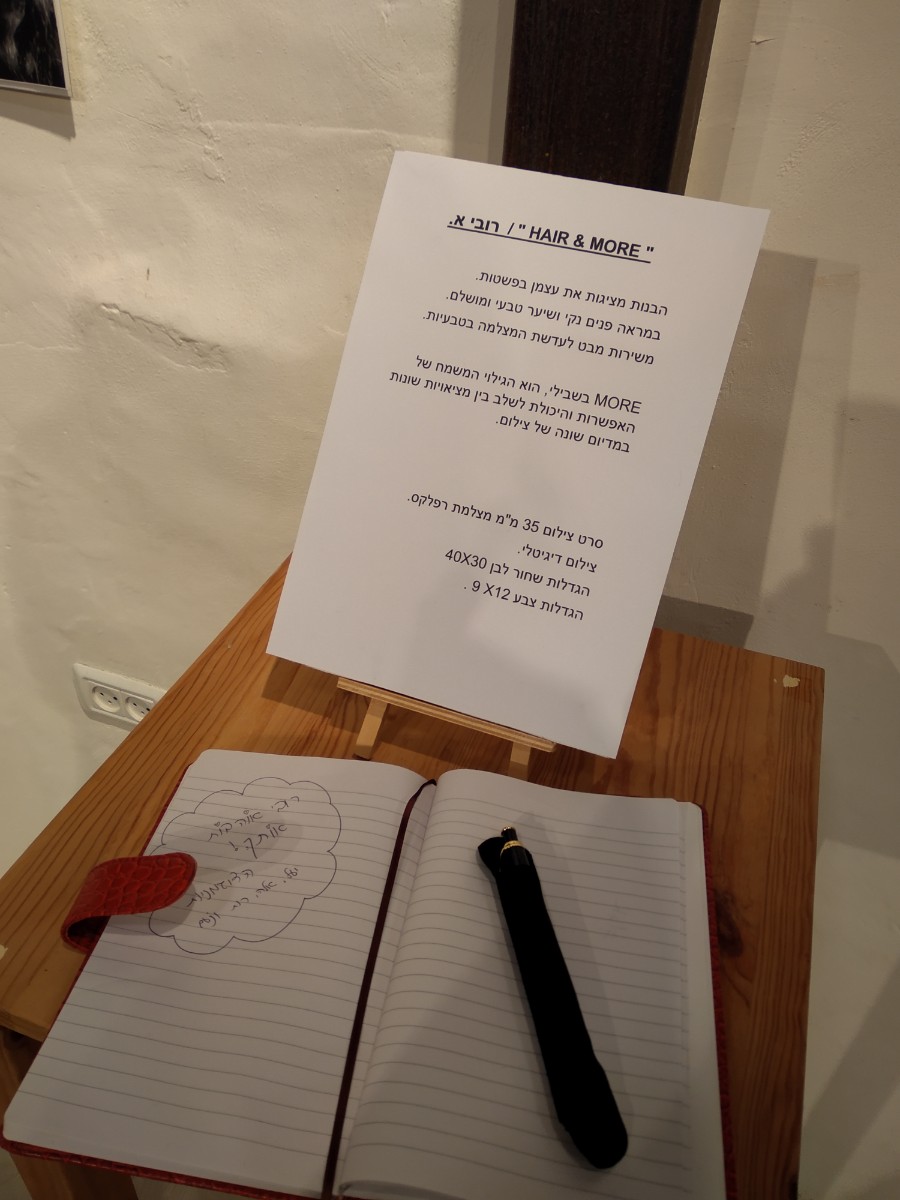 "HAIR & MORE " / רובי א.
הבנות מציגות את עצמן בפשטות.
במראה פנים נקי ושיער טבעי ומושלם.
משירות מבט לעדשת המצלמה בטבעיות.
MORE בשבילי, הוא הגילוי המשמח של
האפשרות והיכולת לשלב בין מציאויות שונות
במדיום שונה של צילום.
סרט צילום 35 מ"מ מצלמת רפלקס.
צילום דיגיטלי.
הגדלות שחור לבן 40X30
הגדלות צבע 9 X12 .
רובי אוהבות
אותך!